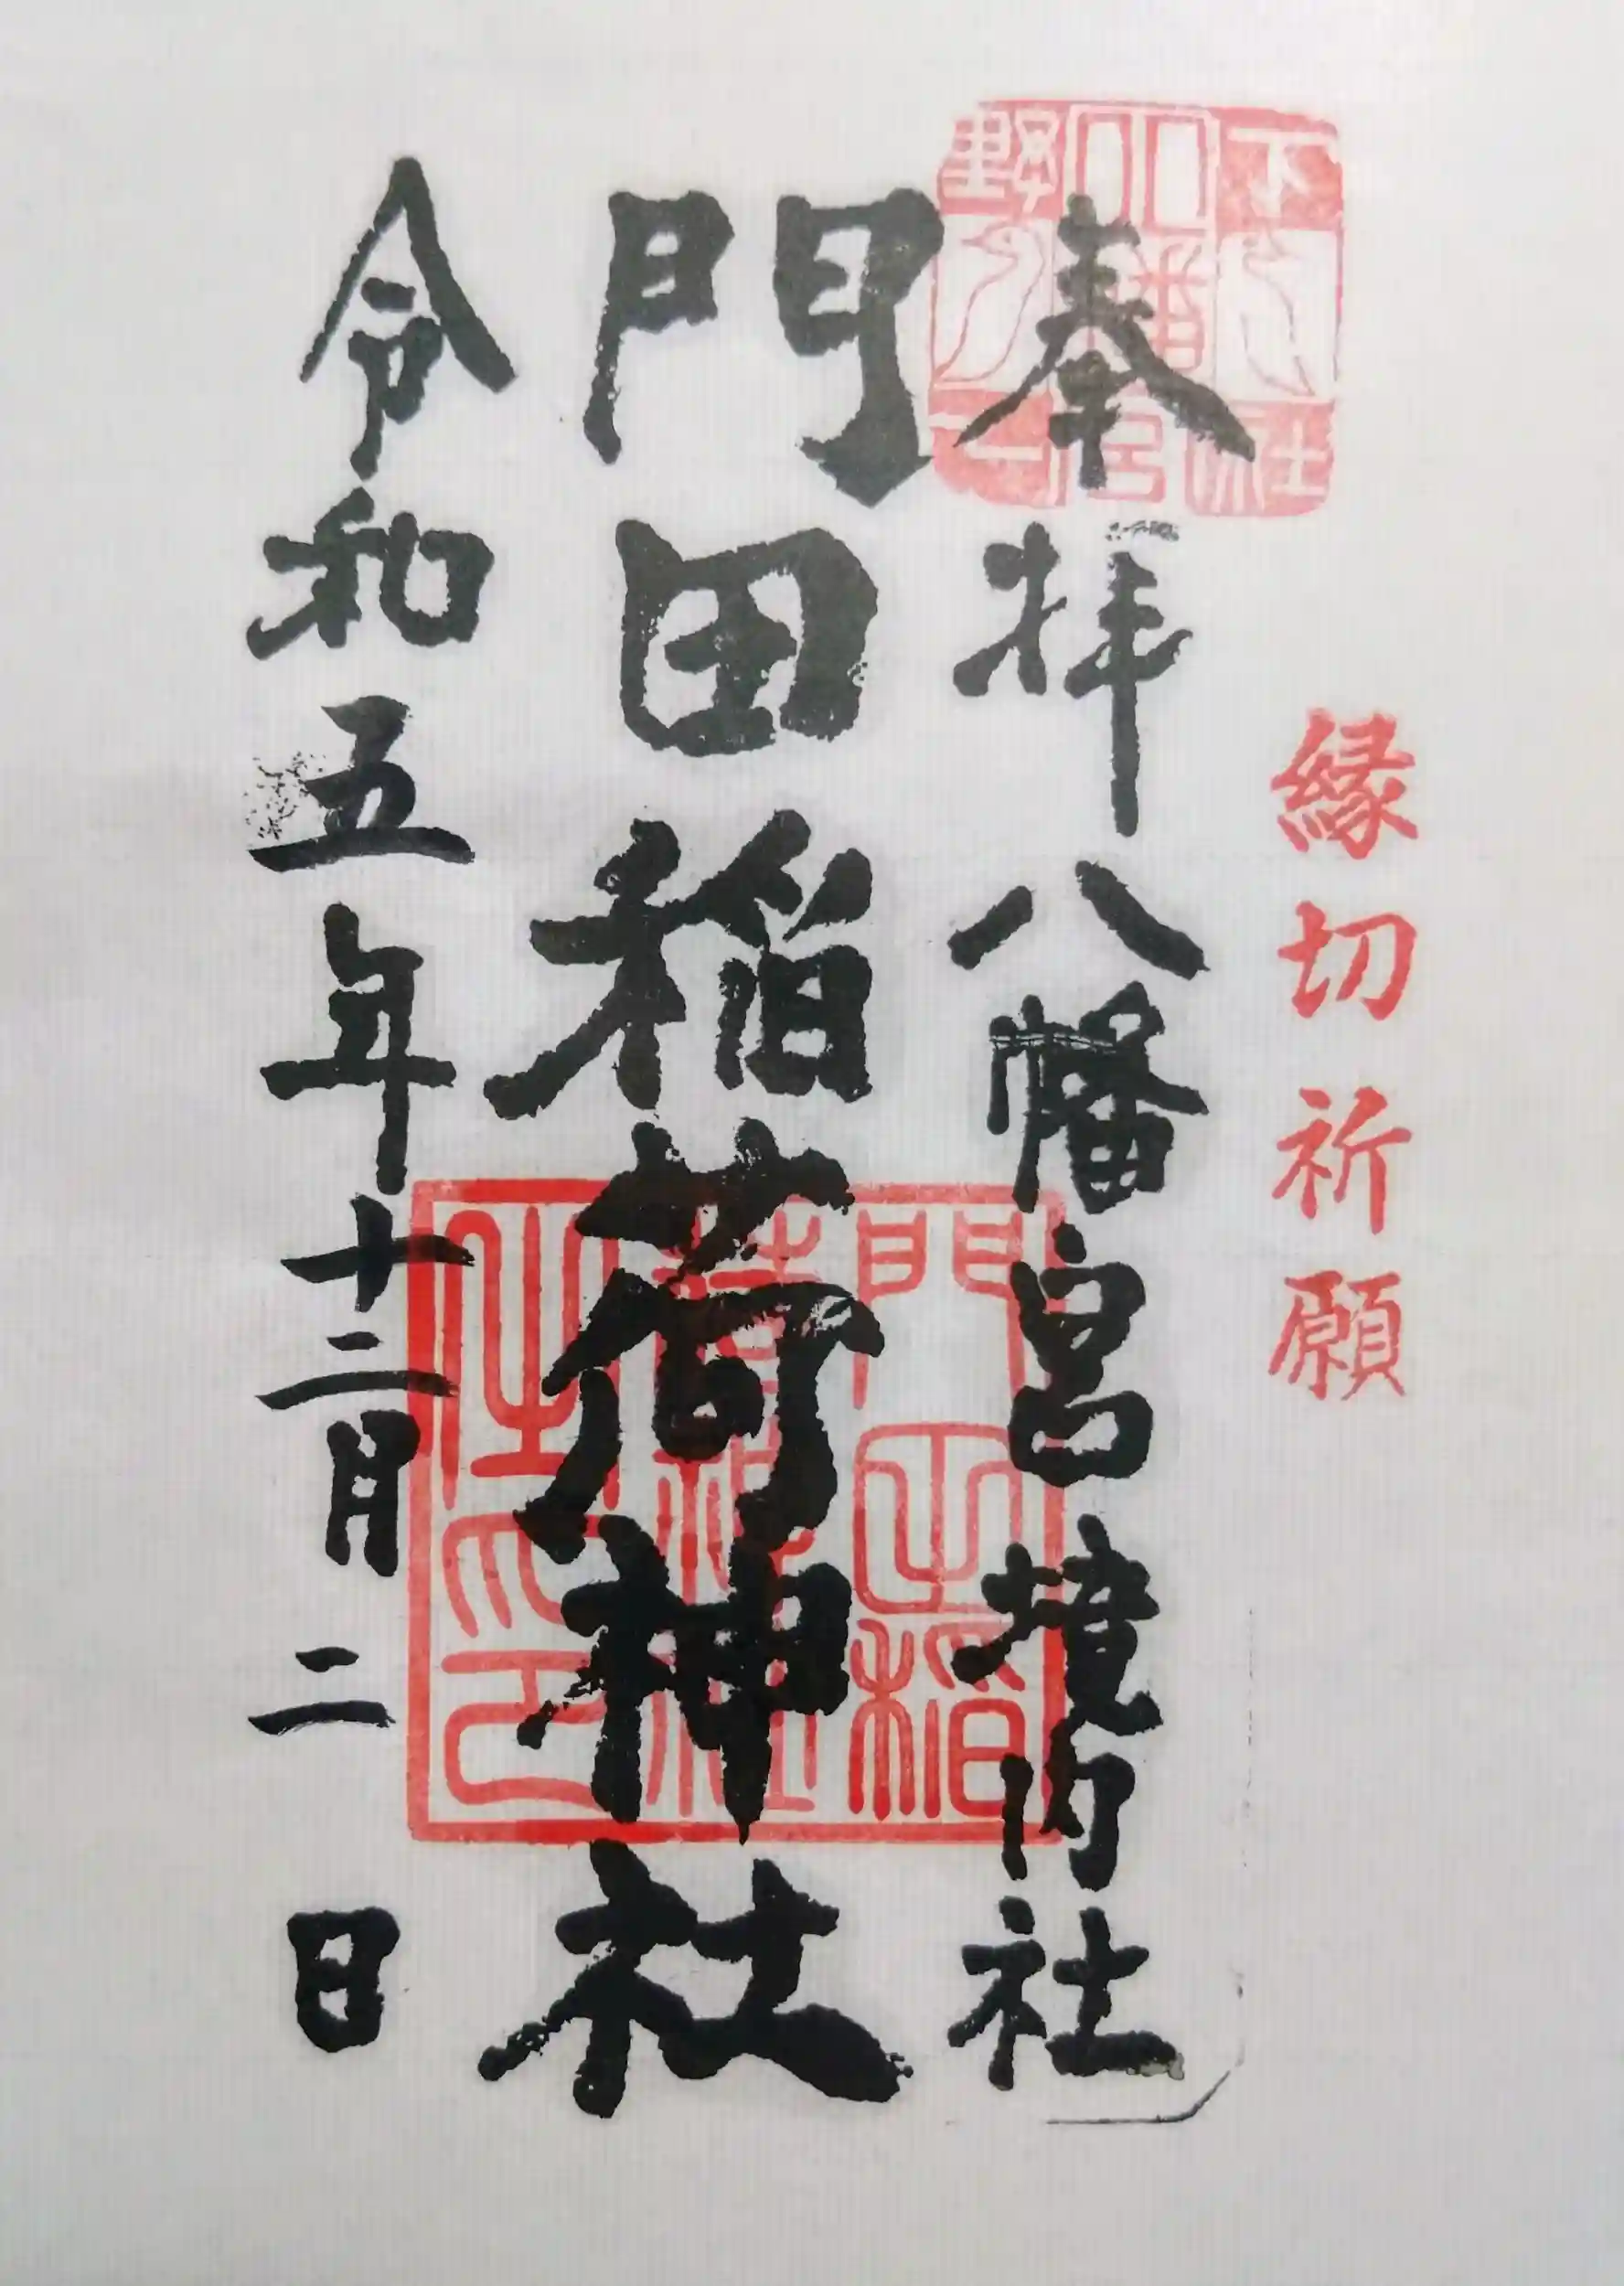 縁切祈願
奉拝八幡宮境内社
門田稲荷神社
令和五年十二月二日
下野
八幡宮
社一
門田稲
荷神社
之印